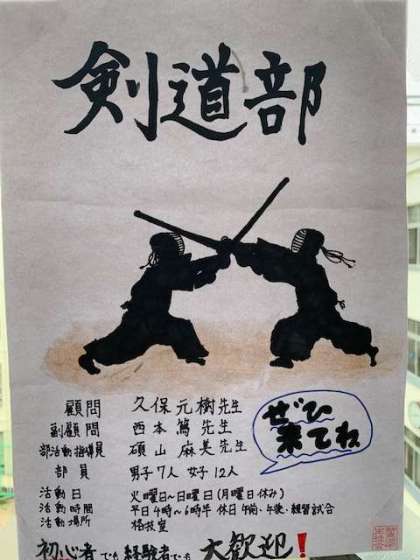 剣道部
顧問 久保元樹先生
副顧問 西本篤先生
部活動指導員 碩山麻美先生
部員 男子7人 女子12人
ぜひ
来てね
活動日 火曜日~日曜日(月曜日休み)
活動時間 平日4時~6時半 休日 午前、午後、練習試合
活動場所 格技室
初心者でも経験者でも大歓迎!